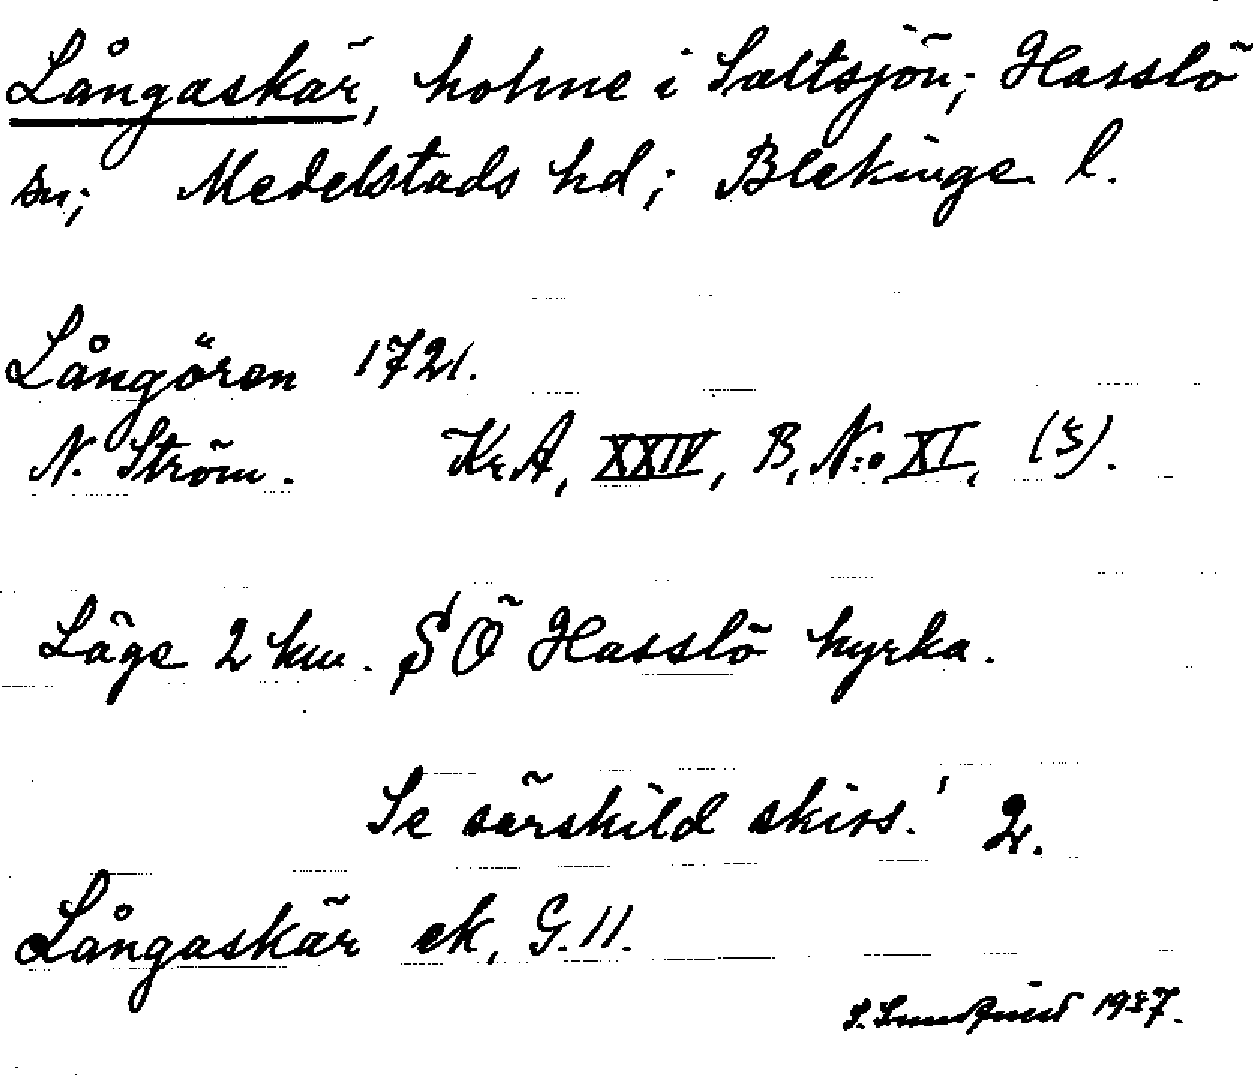 Långaskär, holme i Saltsjön; Hasslö
sn; Medelstads hd; Blekinge l.
Långören 1721.
N. Ström. Kr.A, XXIV, B, N:o XI, (ξ).
Läge 2 km. SÖ Hasslö kyrka.
Se särskild skiss! 2.
Långaskär ek, G.11.
1937.